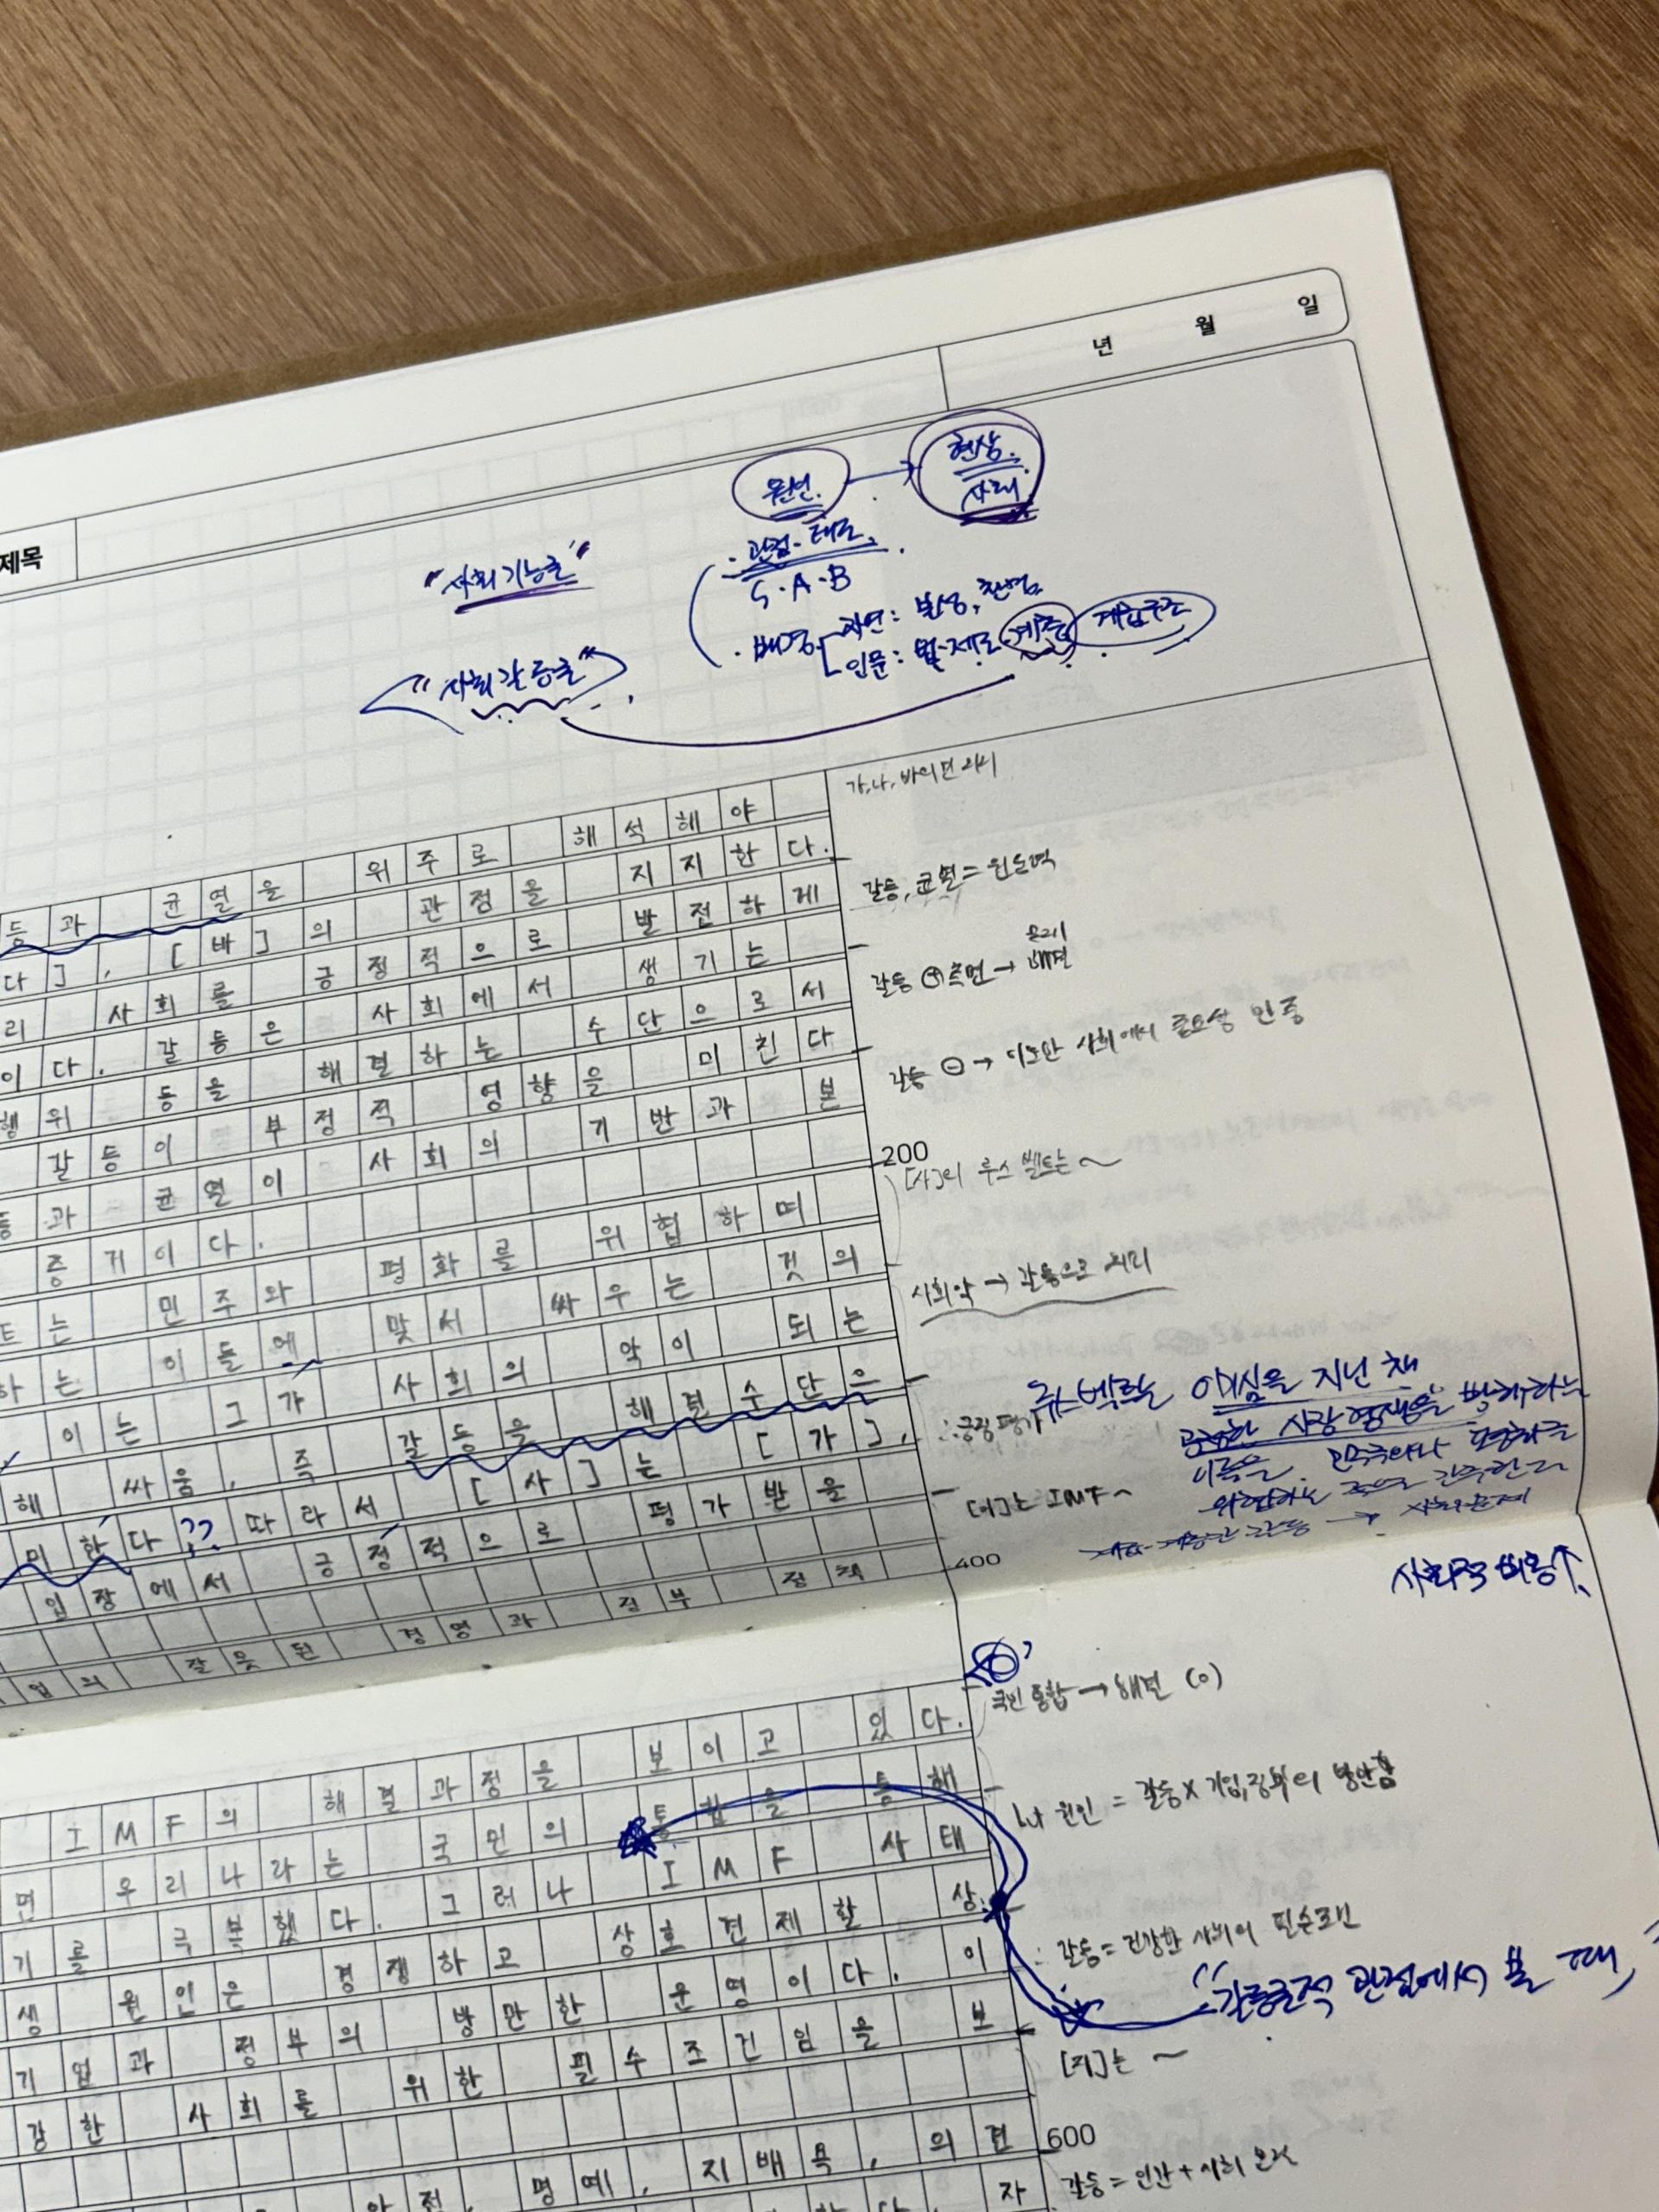 년 월 일
제목
원인. → 현상. 사례
"사회기능론"
· 관점·태도.
S·A·B
"사회갈등론"
· 배경
자연 :
인문 : 법·제도·계층 계급구조
가, 나, 바의 면
등과 균열을 위주로 해석해야
갈등, 균열 = 원동력
다], [바]의 관점을 지지한다.
리 사회를 긍정적으로 발전하게
갈등 ⊕측면 →
이다. 갈등은 사회에서 생기는
행위 등을 해결하는 수단으로서
갈등 ⊖ → 사회에서 중요성 인증
갈등이 부정적 영향을 미친다
등과 균열이 사회의 기반과 본
200
증거이다.
[사]의 루스벨트는 ~
트는 민주와 평화를 위협하며
하는 이들에 맞서 싸우는 것의
사회악 → 갈등으로 처리
이는 그가 사회의 악이 되는
해 싸움, 즉 갈등을 해결수단으
∴긍정평가
루스벨트는 야심을 지닌 채
공정한 시장 경쟁을 방해하는
이들을 민주주의나 평화를
위협하는 적으로 간주한다
미한다?? 따라서 [사]는 [가],
[아]는 IMF ~
입장에서 긍정적으로 평가받을
400
사회적 비용↑.
업의 잘못된 경영과 정부 정책
국민 통합 → 해결 (o)
IMF의 해결과정을 보이고 있다.
면 우리나라는 국민의 통합을 통해
원인 = 갈등X 기업,정부의 방만함
기를 극복했다. 그러나 IMF 사태
생 원인은 경쟁하고 상호견제할 상.
∴ 갈등 = 건강한 사회의 필수조건
기업과 정부의 방만한 운영이다. 이
"갈등론적 관점에서 볼 때,
강한 사회를 위한 필수조건임을 보
[자]는 ~
600
안전, 명예, 지배욕, 의견
갈등 = 인간 + 사회
자